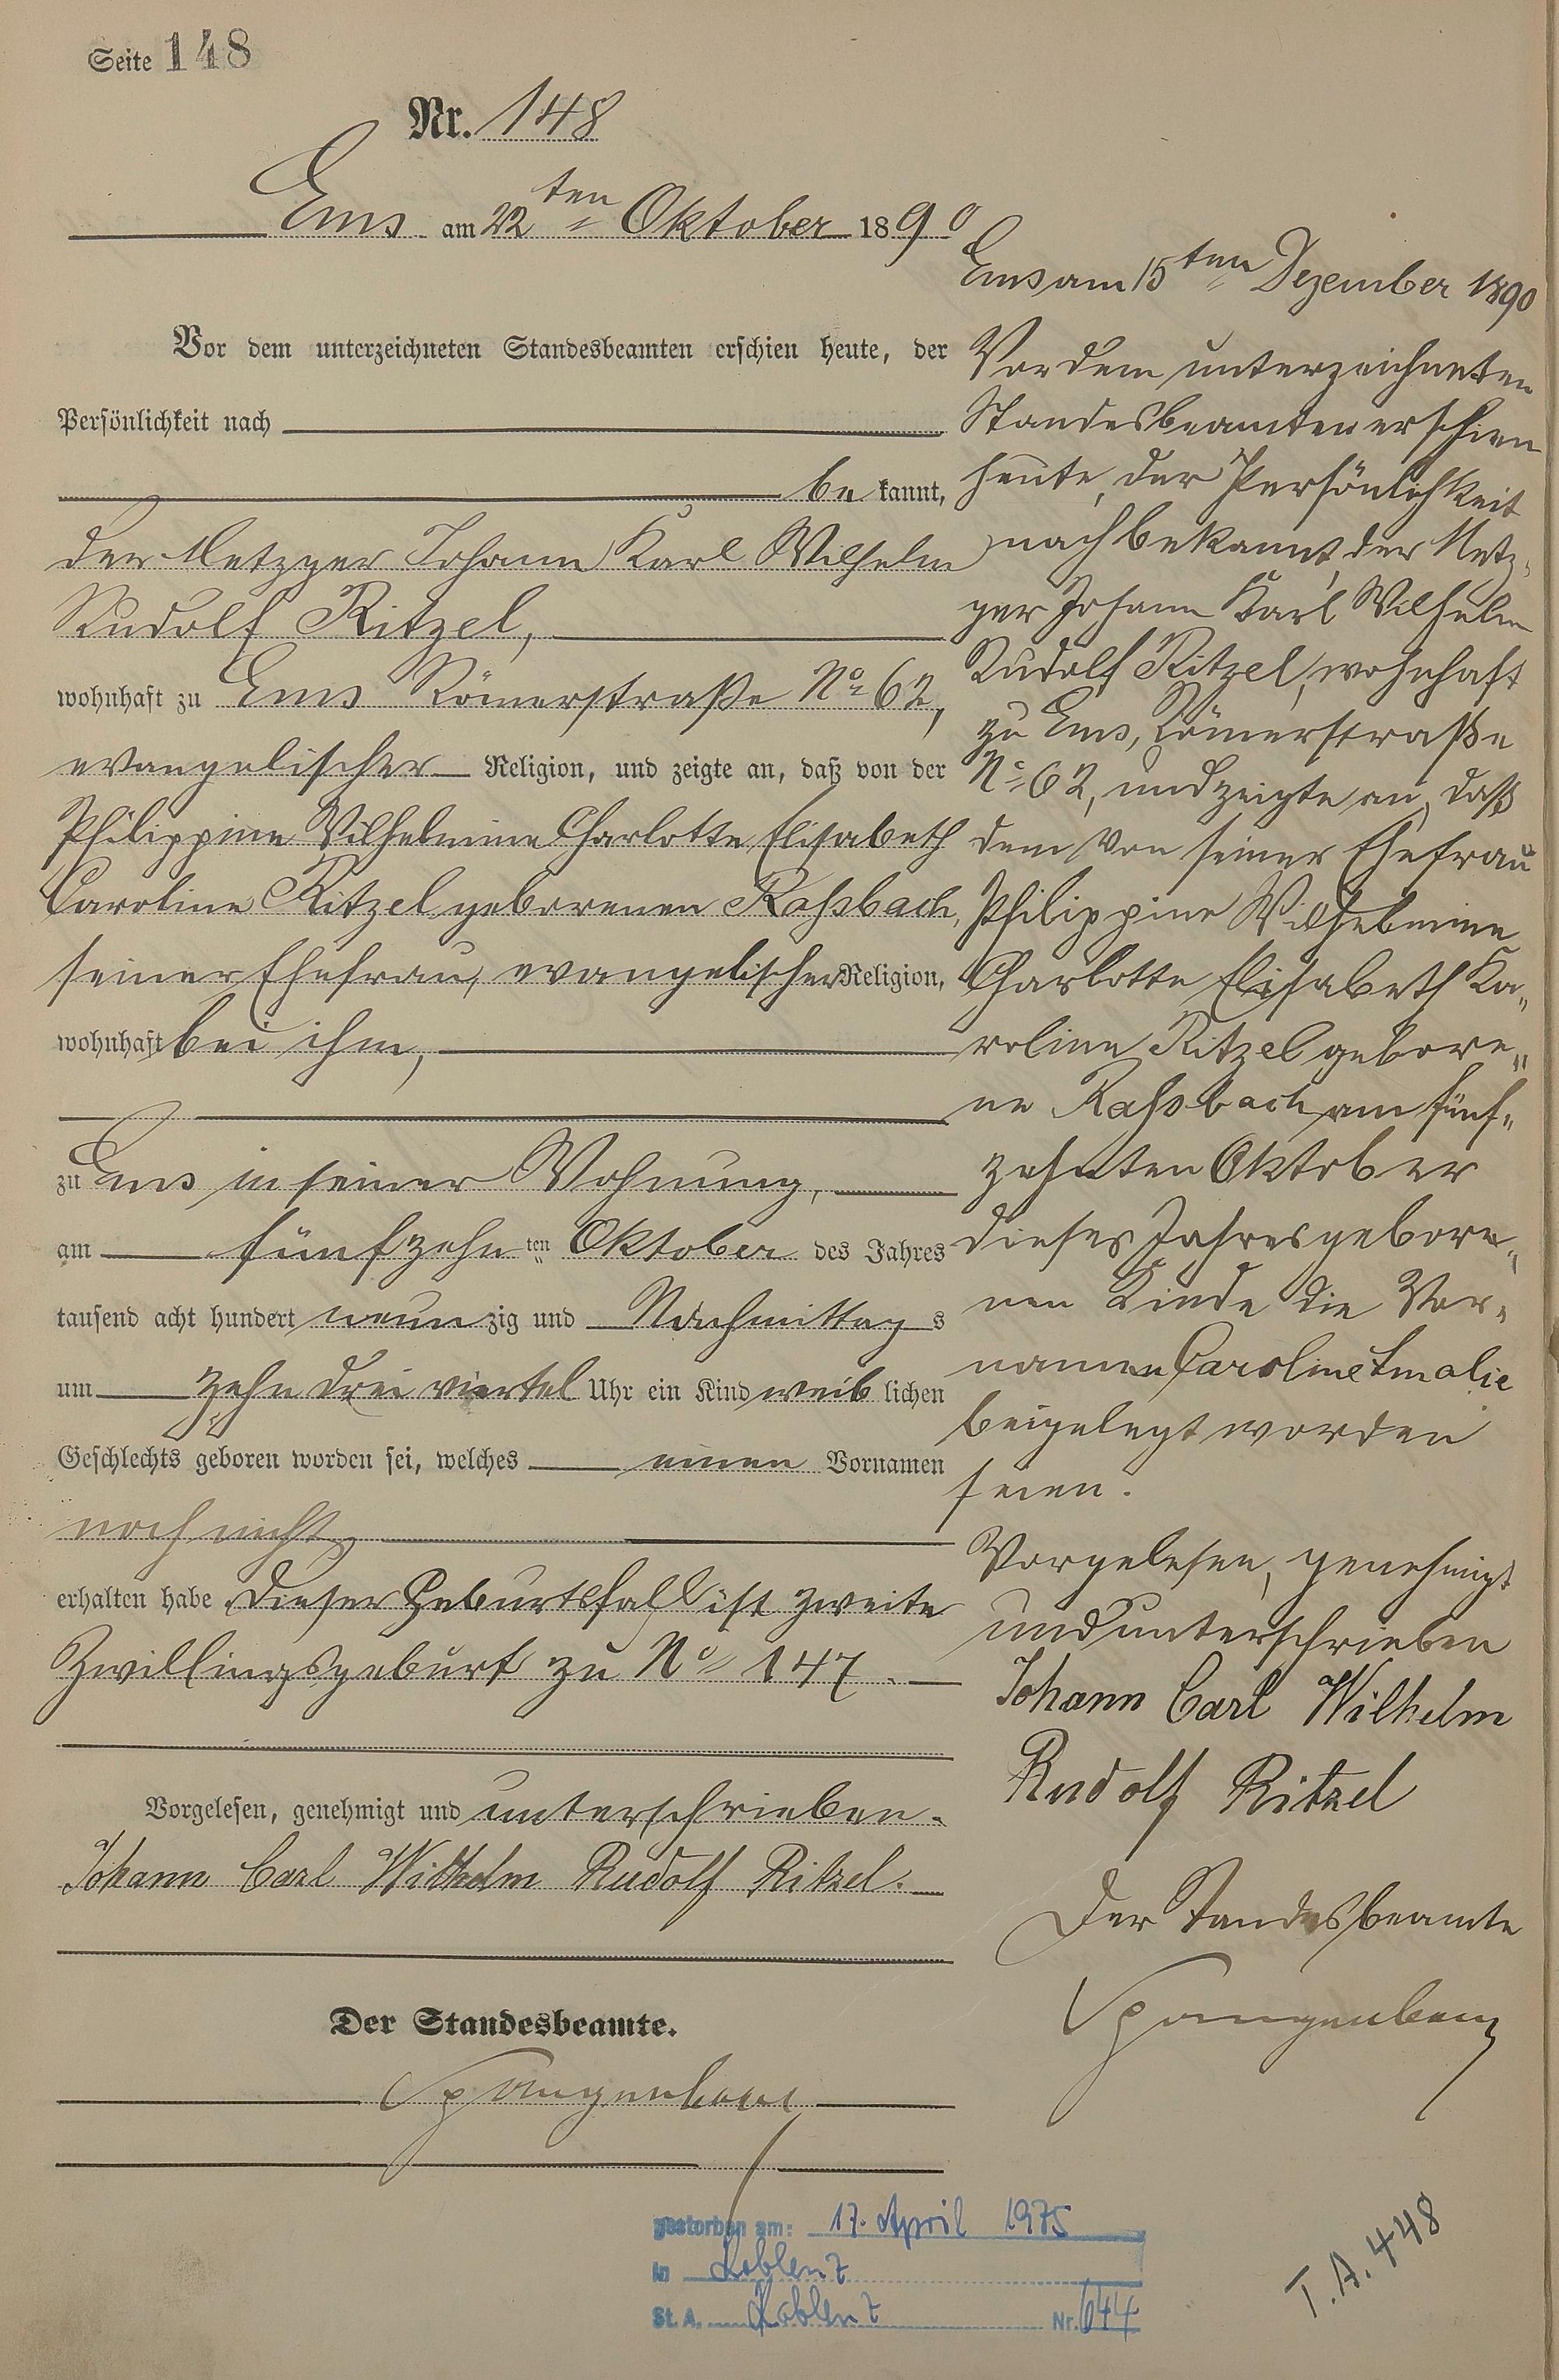 Seite 148
Nr. 148
Ems am 22ten Oktober 1890
Vor dem unterzeichneten Standesbeamten erschien heute, der
Persönlichkeit nach
be kannt,
der Metzger Johann Karl Wilhelm
Rudolf Ritzel,
wohnhaft zu Ems Römerstraße No 62,
evangelischer Religion, und zeigte an, daß von der
Philippine Wilhelmine Charlotte Elisabeth
Caroline Ritzel geborenen Raßbach,
seiner Ehefrau, evangelischer Religion,
wohnhaft bei ihm,
zu Ems in seiner Wohnung,
am fünfzehn ten Oktober des Jahres
tausend acht hundert neun zig und Nachmittag s
um zehn drei viertel Uhr ein Kind weib lichen
Geschlechts geboren worden sei, welches einen Vornamen
noch nicht
erhalten habe Dieser Geburtsfall ist zweite
Zwillingsgeburt zu No 147.
Vorgelesen, genehmigt und unterschrieben.
Johann Carl Wilhelm Rudolf Ritzel.
Der Standesbeamte.
Spangenberg
Ems am 15ten Dezember 1890
Vor dem unterzeichneten
Standesbeamten erschien
heute, der Persönlichkeit
nach bekannt, der Metz-
ger Johann Karl Wilhelm
Rudolf Ritzel, wohnhaft
zu Ems, Römerstraße
No 62, und zeigte an, daß
dem von seiner Ehefrau
Philippine Wilhelmine
Charlotte Elisabeth Ka-
roline Ritzel gebore-
ne Raßbach am fünf-
zehnten Oktober
dieses Jahres gebore-
nen Kinde die Vor-
namen Caroline Emalie
beigelegt worden
seien.
Vorgelesen, genehmigt
und unterschrieben
Johann Carl Wilhelm
Rudolf Ritzel
Der Standesbeamte
Spangenberg
gestorben am: 17. April 1975
in Koblenz
St. A. Koblenz Nr. 644
T.A. 448